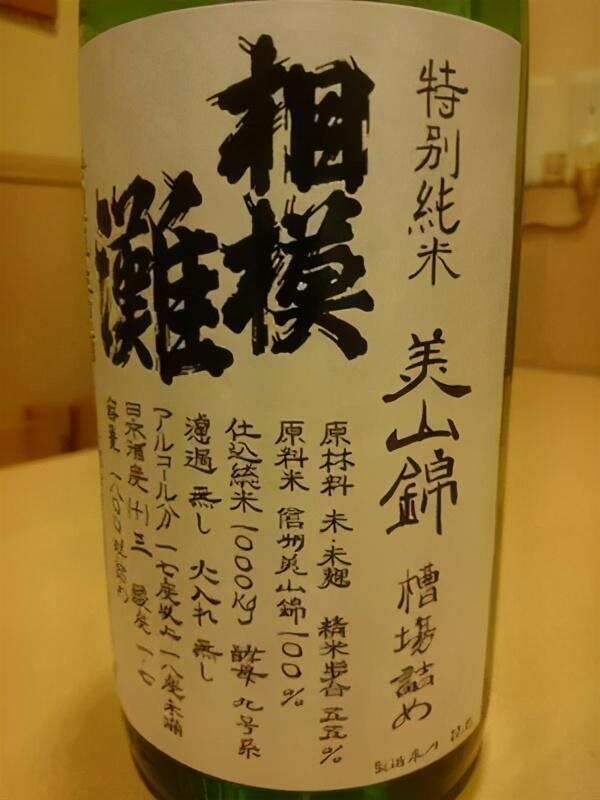 特別純米 美山錦 槽場詰め
相模
灘
原材料 米・米麹 精米歩合 五五%
原料米 信州美山錦100%
仕込総米1000Kg 酵母 九号系
濾過 無し 火入れ 無し
アルコール分 一七度以上一八度未満
日本酒度(+)三 酸度 一.七
容量 一八〇〇
製造年月